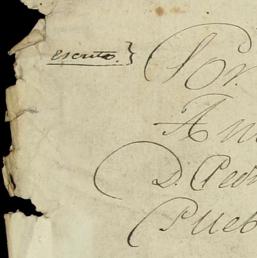 escrito. }
Por
An
D. Ped
Pueb